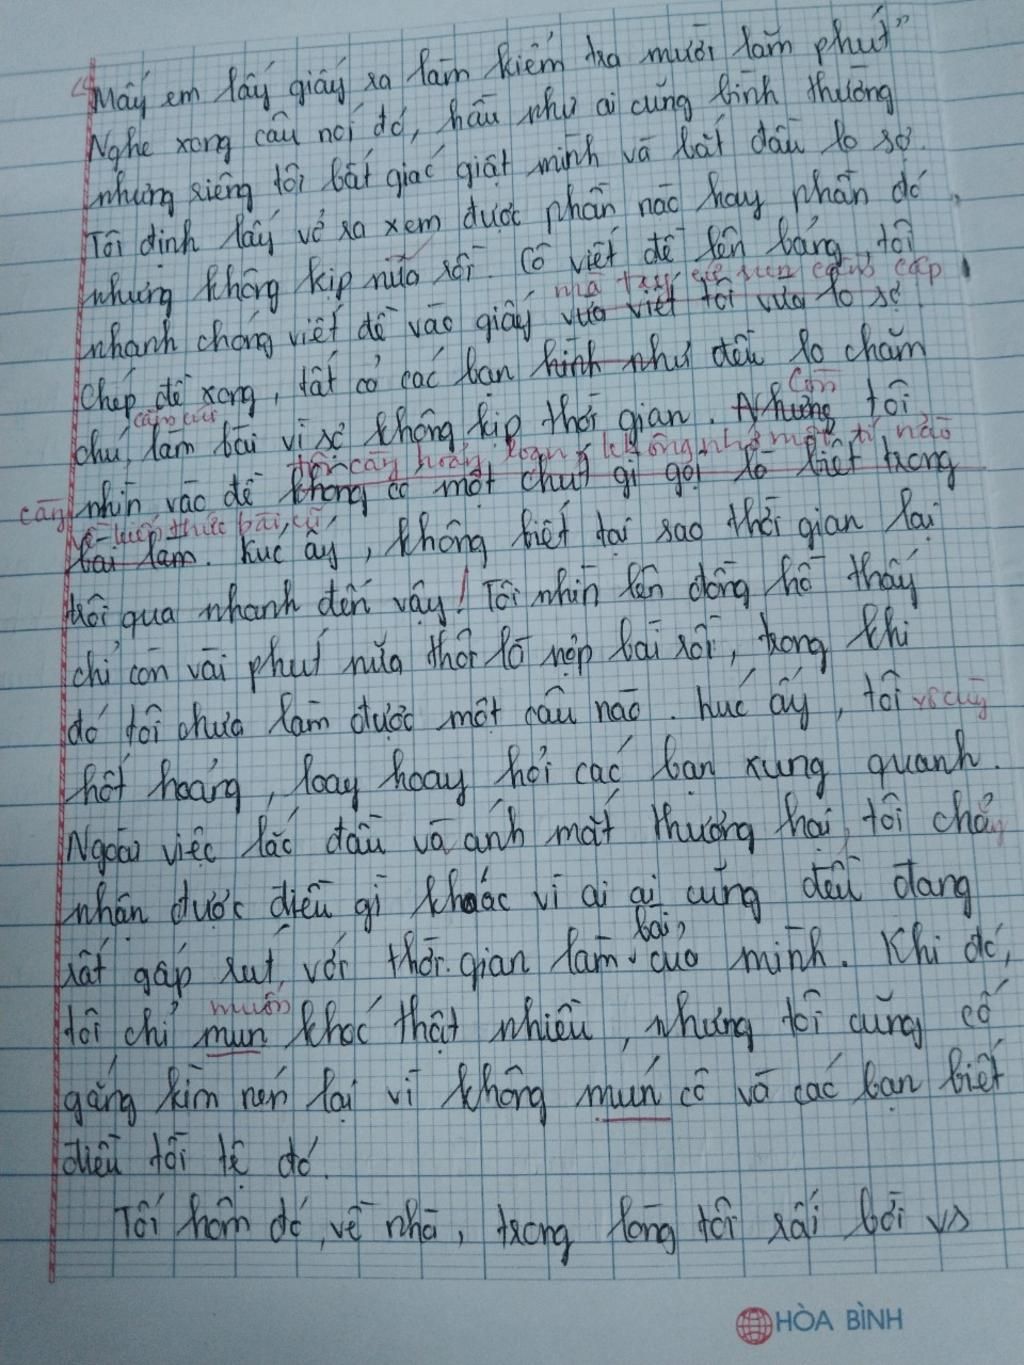 “Mấy em lấy giấy ra làm kiểm tra mười lăm phút”
Nghe xong câu nói đó, hầu như ai cũng bình thường
nhưng riêng tôi bất giác giật mình và bắt đầu lo sợ.
Tôi định lấy vở ra xem được phần nào hay phần đó
nhưng không kịp nữa rồi. Cô viết đề lên bảng, tôi
mà tay cứ run cầm cập
nhanh chóng viết đề vào giấy vừa viết tôi vừa lo sợ.
Chép đề xong, tất cả các bạn hình như đều lo chăm
cắm cúi Còn
chú, làm bài vì sợ không kịp thời gian. Nhưng tôi
tôi càng hoảng loạn, không nhớ một tí nào
càng nhìn vào đề không có một chút gì gọi là biết trong
về kiến thức bài cũ
bài làm. Lúc ấy, không biết tại sao thời gian lại
trôi qua nhanh đến vậy! Tôi nhìn lên đồng hồ thấy
chỉ còn vài phút nữa thôi là nộp bài rồi, trong khi
đó tôi chưa làm được một câu nào. Lúc ấy, tôi vô cùng
hốt hoảng, loay hoay hỏi các bạn xung quanh.
Ngoài việc lắc đầu và ánh mắt thương hại, tôi chẳng
nhận được điều gì khác vì ai ai cũng đều đang
bài,
rất gấp rút, với thời gian làm của mình. Khi đó,
muốn
tôi chỉ mun khóc thật nhiều, nhưng tôi cũng cố
gắng kìm nén lại vì không mún cô và các bạn biết
điều tồi tệ đó.
Tối hôm đó, về nhà, trong lòng tôi rối bời và
HÒA BÌNH